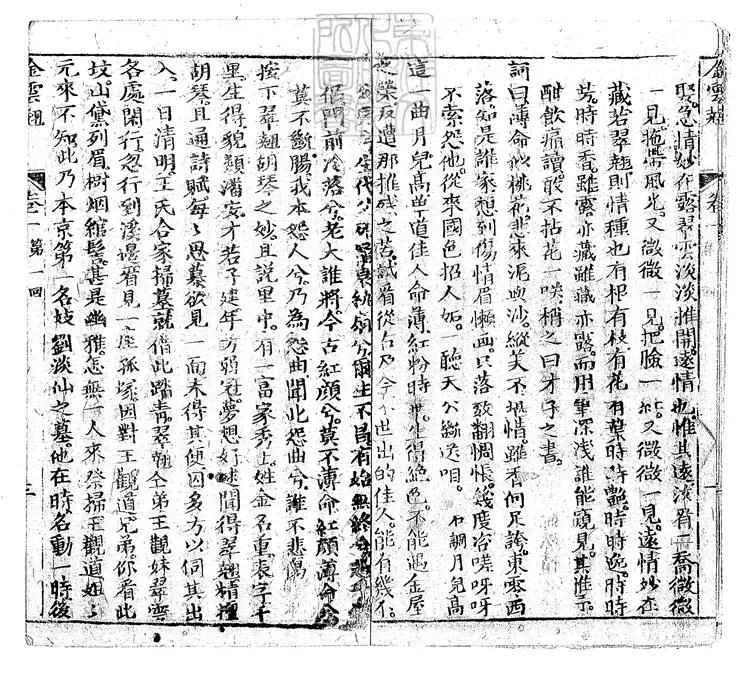 金雲翹 卷一
情妙在露翠雲淡淡推開遠情也惟其遠淡看一喬微微
一見拖帶風光又微微一見把臉一紅又微微一見遠情妙在
藏若翠翹則情種也有根有枝有花有葉時時艷時時逸時時
芳時時香雖露亦藏雖藏亦露而用筆深淺誰能窺見其惟于
酣飲痛讀敢不拈花一咲稍之曰才子之書
詞曰薄命似桃花悲來泥與沙縱美不堪惜雖香何足誇東零西
落知是誰家想到傷情眉懶画只落致翻惆悵幾度咨嗟呀呀
不索怨他從來國色招人妬一聽天公斷送咱 右調月兒高
這一曲月兒高單道佳人命薄紅粉時乖生得絕色不能遇金屋
之榮反遭那摧殘之苦試看從古及今不世出的佳人能有幾个
扇兮爾生不昌有始無終兮
恨門前冷落兮老大誰將今古紅顏兮莫不薄命紅顏薄命兮
莫不斷腸我本怨人兮乃為怨曲聞此怨曲兮誰不悲傷
按下翠翹胡琴之妙且說里中有一富家秀士姓金名重表字千
里生得貌類潘安才若子建年方弱冠夢想好逑聞得翠翹精擅
胡琴且通詩賦每〻思慕欲見一面未得其便因多方以伺其出
入一日清明王氏合家掃墓就借此踏青翠翹仝弟王觀妹翠雲
各處閑行忽行到溪邊看見一座孤塚因對王觀道兄弟你看此
坟山黛列眉樹烟綰髻甚是幽雅怎無一人來祭掃王觀道姐〻
元來不知此乃本京第一名妓劉淡仙之墓他在時名動一時後
金雲翹 卷一 第一回 三